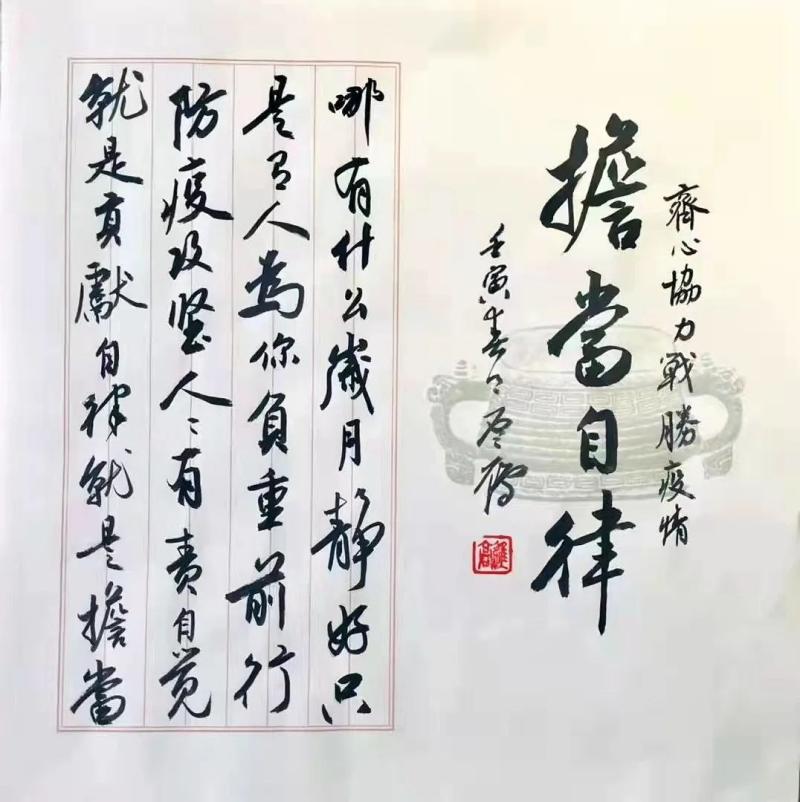 齊心協力戰勝疫情
擔當自律
壬寅春
哪有什么歲月静好只
是有人為你負重前行
防疫攻坚人〻有责自觉
就是貢獻自律就是擔當